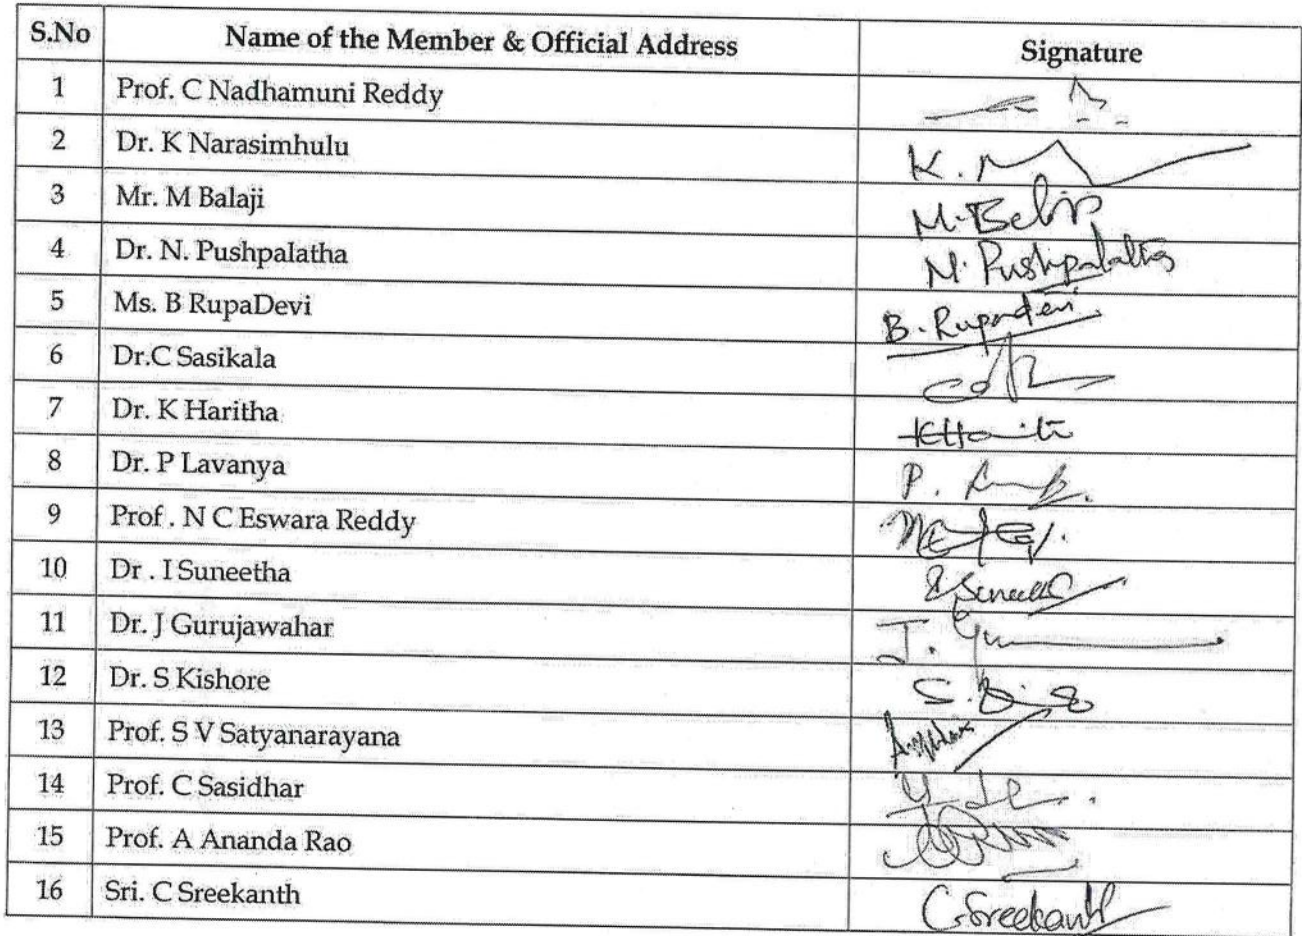 S.No Name of the Member & Official Address Signature
1 Prof. C Nadhamuni Reddy
2 Dr. K Narasimhulu K.
3 Mr. M Balaji M. Balaji
4 Dr. N. Pushpalatha N. Pushpalatha
5 Ms. B RupaDevi B. Rupadevi
6 Dr.C Sasikala
7 Dr. K Haritha
8 Dr. P Lavanya P.
9 Prof . N C Eswara Reddy
10 Dr . I Suneetha
11 Dr. J Gurujawahar J.
12 Dr. S Kishore S.
13 Prof. S V Satyanarayana
14 Prof. C Sasidhar
15 Prof. A Ananda Rao
16 Sri. C Sreekanth C. Sreekanth